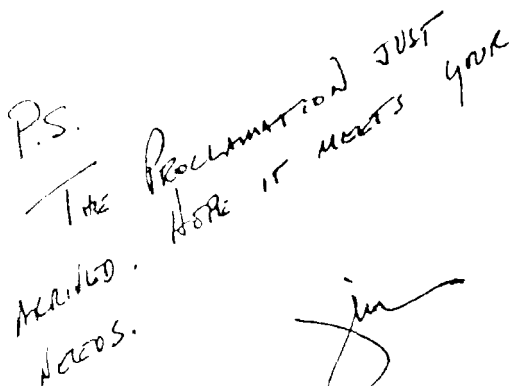 P.S.
THE PROCLAMATION JUST
ARRIVED. HOPE IT MEETS YOUR
NEEDS.
Jim